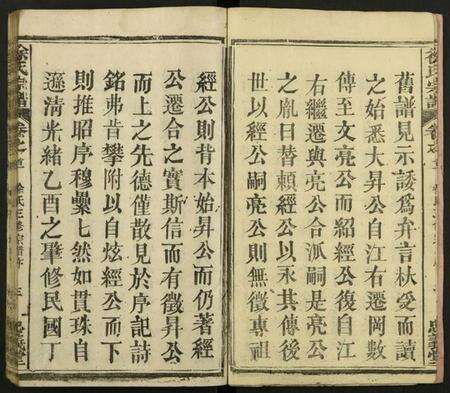 舊譜見示諉為弁言秋受而讀
之始悉大昇公自江右遷岡數
傳至文亮公而紹經公復自江
右繼遷與亮公合派嗣是亮公
之胤日替賴經公以永其傳後
世以經公嗣亮公則無徵專祖
經公則背本始昇公而仍著經
公遷合之實斯信而有徵昇公
而上之先德僅散見於序記詩
銘弗肯攀附以自炫經公而下
則推昭序穆纍七然如貫珠自
遜清光緒乙酉之肇修民國丁
徐氏宗譜
卷之首
三